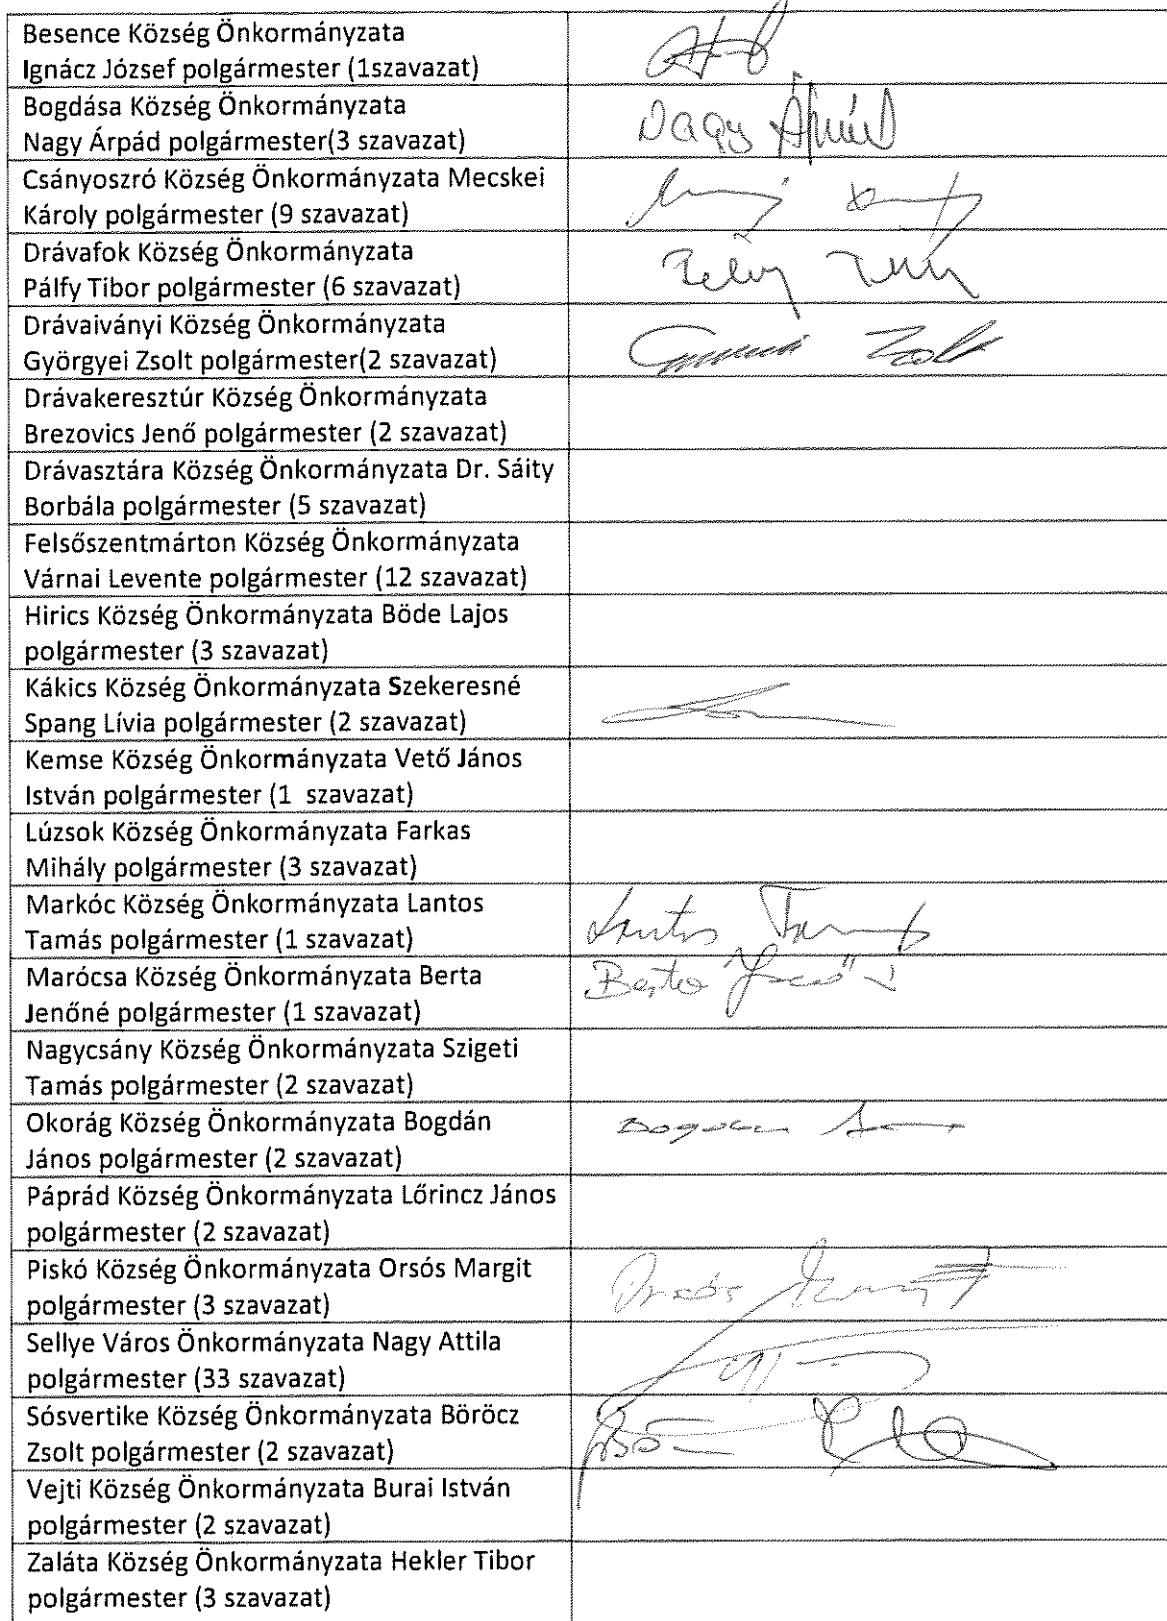 Besence Község Önkormányzata
Ignácz József polgármester (1szavazat)
Bogdása Község Önkormányzata
Nagy Árpád polgármester(3 szavazat)
Nagy Árpád
Csányoszró Község Önkormányzata Mecskei
Károly polgármester (9 szavazat)
Drávafok Község Önkormányzata
Pálfy Tibor polgármester (6 szavazat)
Drávaiványi Község Önkormányzata
Györgyei Zsolt polgármester(2 szavazat)
Zsolt
Drávakeresztúr Község Önkormányzata
Brezovics Jenő polgármester (2 szavazat)
Drávasztára Község Önkormányzata Dr. Sáity
Borbála polgármester (5 szavazat)
Felsőszentmárton Község Önkormányzata
Várnai Levente polgármester (12 szavazat)
Hirics Község Önkormányzata Böde Lajos
polgármester (3 szavazat)
Kákics Község Önkormányzata Szekeresné
Spang Lívia polgármester (2 szavazat)
Kemse Község Önkormányzata Vető János
István polgármester (1 szavazat)
Lúzsok Község Önkormányzata Farkas
Mihály polgármester (3 szavazat)
Markóc Község Önkormányzata Lantos
Tamás polgármester (1 szavazat)
Lantos Tamás
Marócsa Község Önkormányzata Berta
Jenőné polgármester (1 szavazat)
Berta Jenőné
Nagycsány Község Önkormányzata Szigeti
Tamás polgármester (2 szavazat)
Okorág Község Önkormányzata Bogdán
János polgármester (2 szavazat)
Páprád Község Önkormányzata Lőrincz János
polgármester (2 szavazat)
Piskó Község Önkormányzata Orsós Margit
polgármester (3 szavazat)
Orsós Margit
Sellye Város Önkormányzata Nagy Attila
polgármester (33 szavazat)
Sósvertike Község Önkormányzata Böröcz
Zsolt polgármester (2 szavazat)
Vejti Község Önkormányzata Burai István
polgármester (2 szavazat)
Zaláta Község Önkormányzata Hekler Tibor
polgármester (3 szavazat)